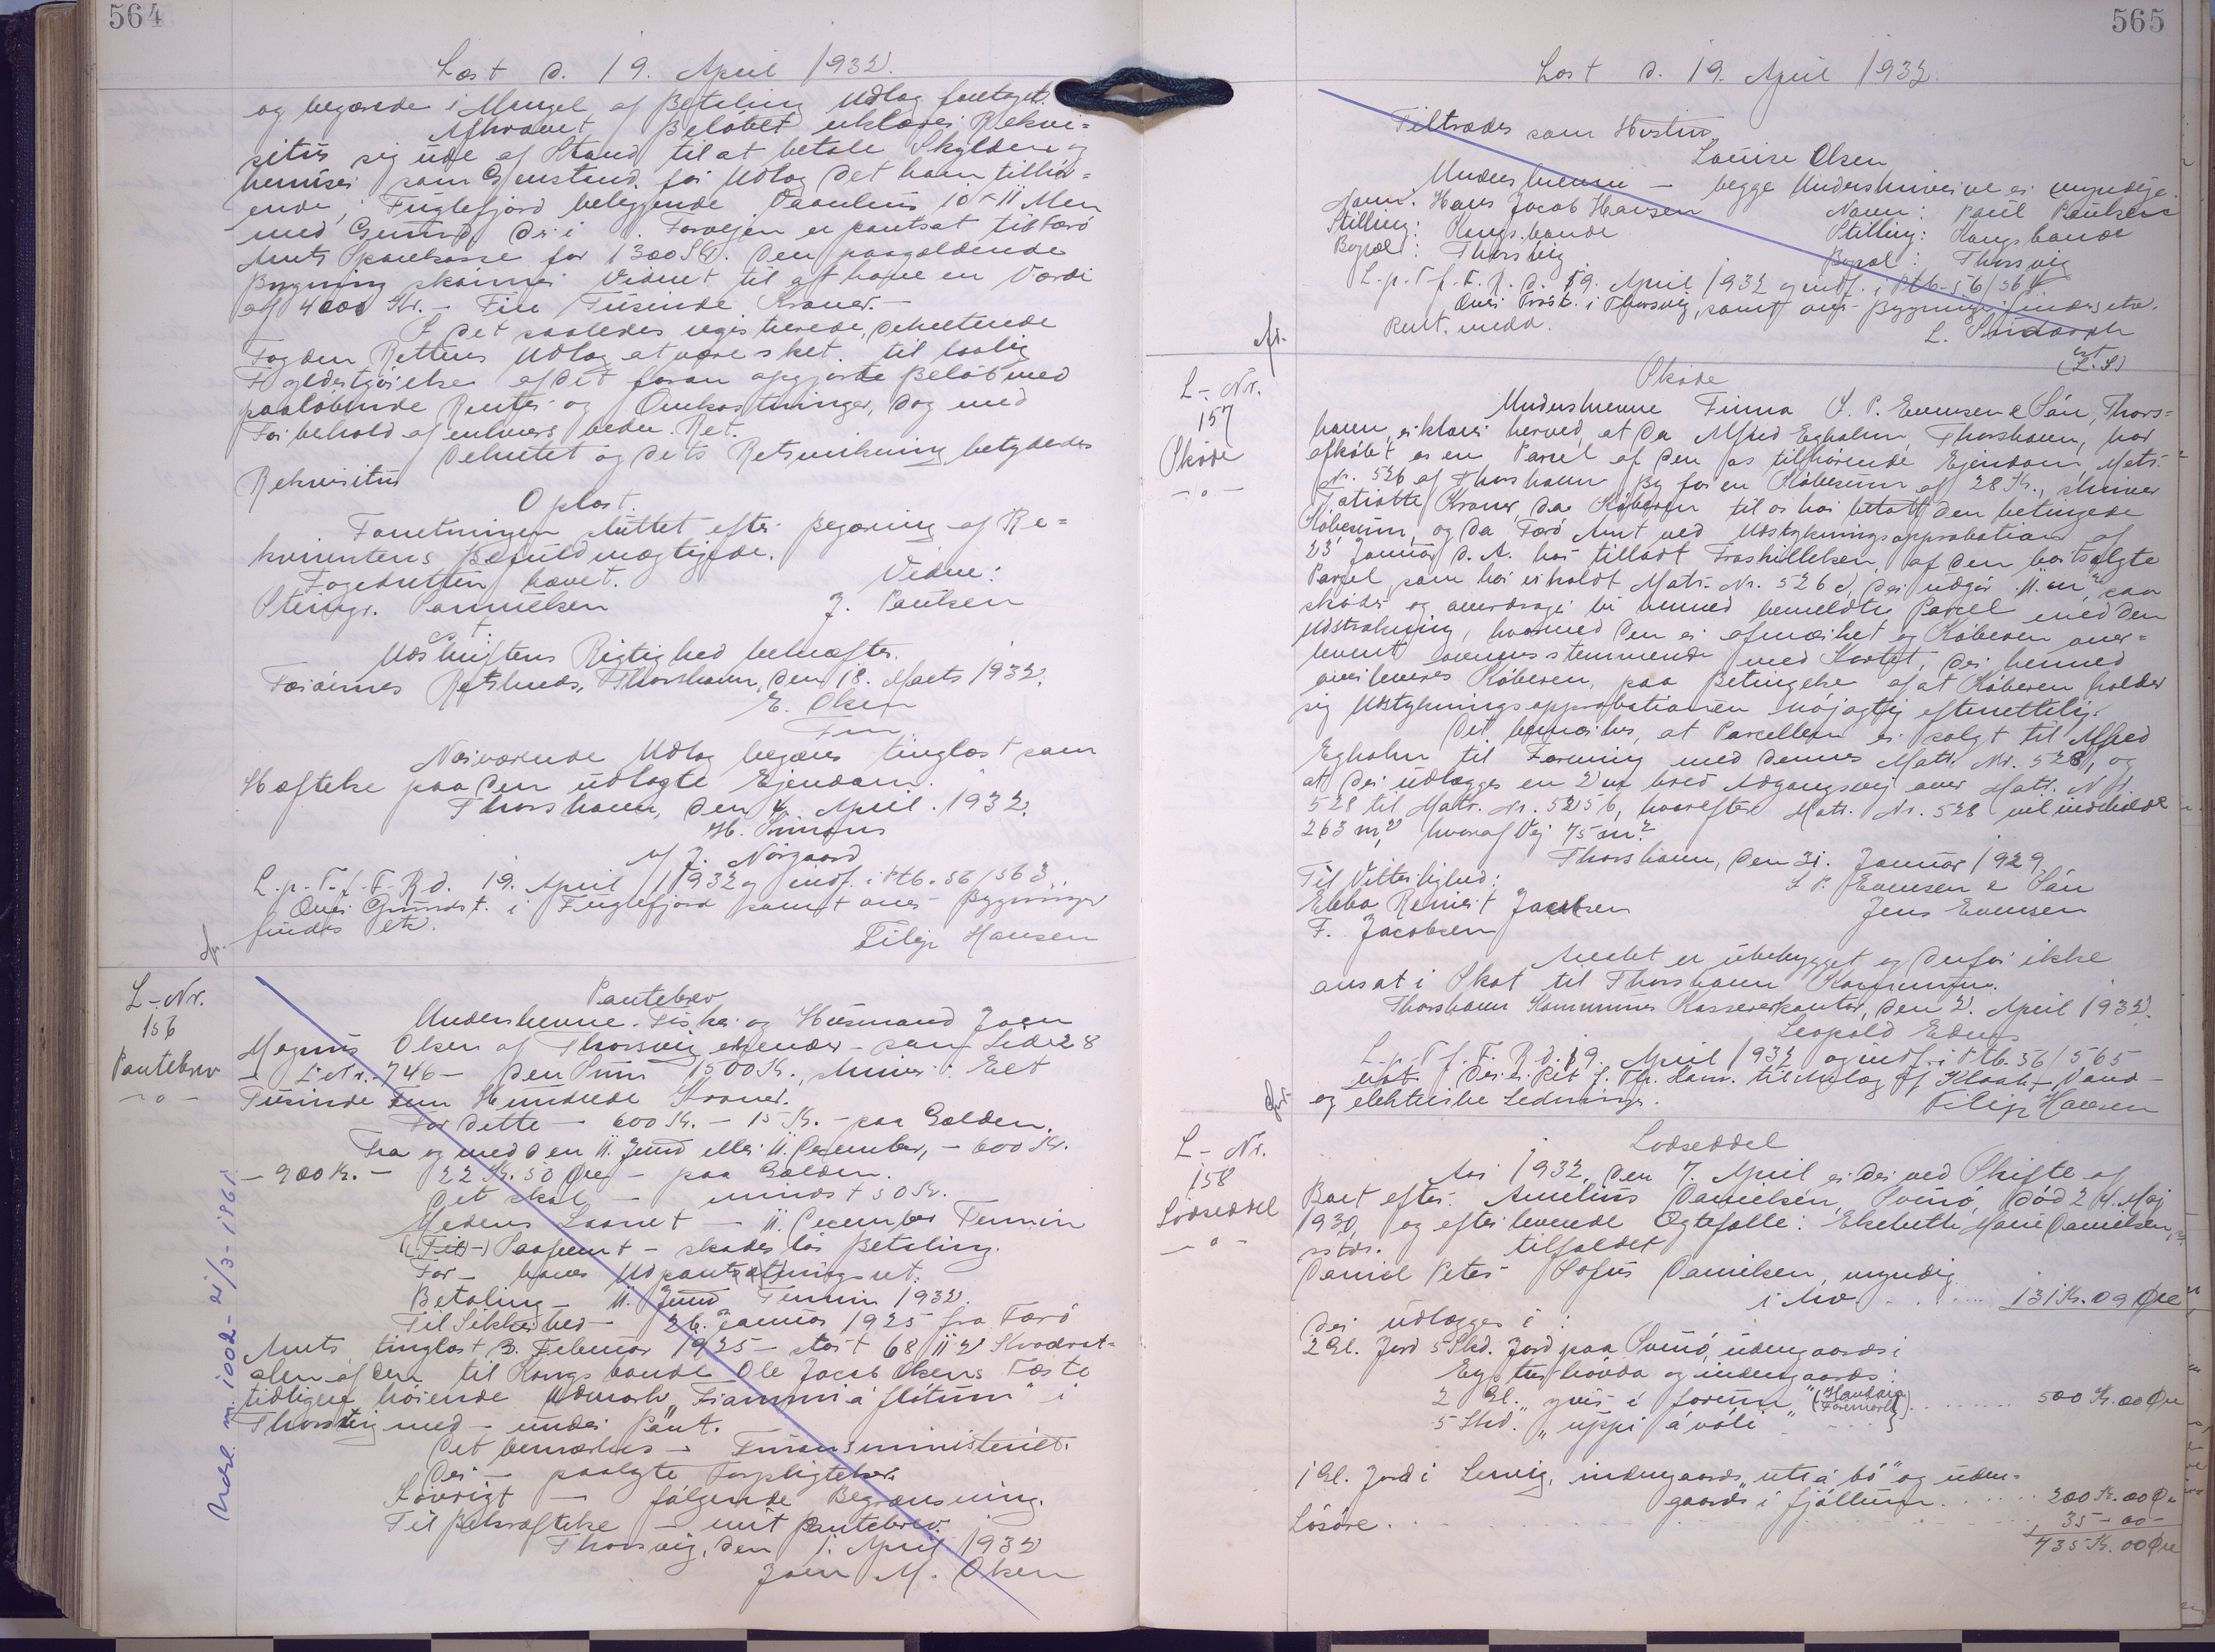 564
Læst d. 19. April 1932.
og begærede i Mangel af Betaling Udlag foretaget.
Afkrævet Beløbet erklærer Rekvi-
situs sig ude af Stand til at betale Skylden og
henviser som Genstand for Udlag det ham tilhør-
ende, i Fuglefjord beliggende 10 x 11 Alen
med Grund, der i Forvejen er pantsat til Færø
Amts Sparekasse for 1300 Kr. Den paagældende
Bygning skønner Vidnet til at have en Værdi
af 4000 Kr. - Fire Tusinde Kroner. -
I det saaledes registrerede, dekreterede
Fogden Rettens Udlæg at være sket til lovlig
Fyldestgørelse af det foran opgjorte Beløb med
paaløbende Renter og Omkostninger, dog med
Forbehold af enhvers bedre Ret.
Dekretet og dets Retsvirkning betydedes
Rekvisitus
Oplæst.
Forretningen sluttet efter Begæring af Re-
kvirentens Befuldmægtigede.
Fogedretten hævet.
Vidne:
Steingr. Samuelsen
J. Poulsen
Udskriftens Rigtighed bekræftes.
Færøernes Retskreds, Thorshavn, den 18. Marts 1932.
E. Olsen
Fm
Nærværende Udlæg begæres tinglæst som
Hæftelse paa den udlagte Ejendom.
Thorshavn, den 4. April 1932.
H. Simons
af J. Nørgaard
L. p. T. f. F. R. d. 19. April 1932 og indf. i Ptb. 56/563.
Over Grundst. i Fuglefjord samt over Bygninger
findes etc.
Filip Hansen
L. Nr.
156
Pantebrev
- o -
Pantebrev
Underskrevne Fisker og Husmand Joen
Magnus Olsen af Thorsvig erkender - som Side 28
- L. Nr. 746 - den Sum 1500 Kr., skriver: Eet
Tusinde Fem Hundrede Kroner.
For dette - 600 Kr. - 15 Kr. - paa Gælden.
Fra og med den 11. Juni eller 11. December, - 600 Kr.
- 900 Kr. - 22 Kr. 50 Øre - paa Gælden.
Det skal - mindst 50 Kr.
Medens Laanet - 11. December Termin
(Til -) Paafemt - skadesløs Betaling.
For - haves Udpantningsret.
Betaling - 11. Juni Termin 1932.
Til Sikkerhed - 26. Januar 1925 fra Færø
Amt, tinglæst 3. Februar 1925 - stort 68112 Kvadrat-
alen af den til Kongsbonde Ole Jacob Olsens Fæste
tidligere hørende Udmark "Frammi á fløtum" i
Thorsvig med - under Pant.
Det bemærkes - Finansministeriet.
Der - paalagte Forpligtelser.
Iøvrigt - følgende Begrænsning.
Til Bekræftelse - mit Pantebrev.
Thorsvig, den 1. April 1932
Joen M. Olsen
565
Læst d. 19. April 1932.
Tiltrædes som Hustru
Louise Olsen
Underskrevne - begge Underskriverne er myndige.
Navn: Hans Jacob Hansen
Navn: Poul Poulsen
Stilling: Kongsbonde
Stilling: Kongsbonde
Bopæl: Thorsvig
Bopæl: Thorsvig
L. p. T. f. F. R. d. 19. April 1932 og indf. i Ptb. 56/564
Over i Thorsvig, samt over Bygninger findes etc.
L.
(L. S)
L. Nr.
157
Skøde
- o -
Skøde
Underskrevne Firma J. P. Evensen & Søn, Thors-
havn, erklærer herved, at da Alfred Egholm, Thorshavn, har
afkøbt os en Parcel af den os tilhørende Ejendom, Matr.
Nr. 526 af Thorshavn By for en Købesum af 28 Kr., skriver
Tyveotte Kroner, da Køberen til os har betalt den betingede
Købesum, og da Færø Amt ved Udstykningsapprobation af
23. Januar d. A. har tilladt Fraskillelsen af den bortsolgte
Parcel, som har erholdt Matr. Nr. 526 d, der udgør 11 m², saa
skøder og overdrager vi hermed bemeldte Parcel med den
Udstrækning, hvormed den er afmærket og Køberen over-
leveret overensstemmende med Kortet, der hermed
overleveres Køberen, paa Betingelse af at Køberen holder
sig Udstykningsapprobationen nøjagtig efterrettelig.
Det bemærkes, at Parcellen er solgt til Alfred
Egholm til Forening med dennes Matr. Nr. 528, og
at der udlægges en 2 m bred Adgangsvej over Matr. Nr.
528 til Matr. Nr. 525 b, hvorefter Matr. Nr. 528 vil indeholde
263 m², hvoraf Vej 75 m².
Thorshavn, den 31. Januar 1929.
Til Vitterlighed:
J. P. Evensen & Søn
Ebba Reinert Jacobsen
Jens Evensen
F. Jacobsen
er ubebygget og derfor ikke
ansat i Skat til Thorshavn Kommune.
Thorshavn Kommunes Kassererkontor, den 2. April 1932.
Leopold
L. p. T. f. F. R. d. 19. April 1932 og indf. i Ptb. 56/565
Ret f. Th. Havn. til Anlæg af Kloak-, Vand-
og elektriske Ledninger.
Filip Hansen
L. Nr.
158
Lodseddel
- o -
Lodseddel
Aar 1932, den 7. April, er der ved Skifte af
Boet efter Amelius Danielsen, Svinø, død 24. Maj
1930, og efterlevende Ægtefælle: Elsebeth Marie Danielsen,
tilfaldet
Daniel Peter Sofus Danielsen, myndig
i Arv . . . . . 131 Kr. 09 Øre
Der udlægges i:
2 Gl. Jord 5 Skd. Jord paa Svinø, udengaards i
Eysturhøvda og indengaards:
2 Gl. "yvir í forum" (Havdala Foremork) . . . . 500 Kr. 00 Øre
5 Skd. "uppi á váli"
1 Gl. Jord i Lervig, indengaards "úti á bø" og uden-
gaards "í fjøllum . . . . . 200 Kr. 00 Øre
Løsøre . . . . . 35 - 00 -
735 Kr. 00 Øre